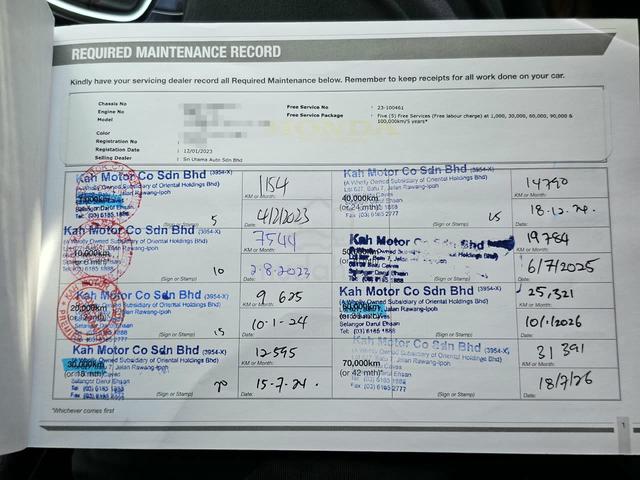 REQUIRED MAINTENANCE RECORD
Kindly have your servicing dealer record all Required Maintenance below. Remember to keep receipts for all work done on your car.
Chassis No
Engine No
Free Service No : 23-100461
Free Service Package : Five (5) Free Services (Free labour charge) at 1,000, 30,000, 60,000, 90,000 & 100,000km/5 years*
Color
Registration No
Registration Date : 12/01/2023
Selling Dealer : Sri Utama Auto Sdn Bhd
HONDA
Kah Motor Co Sdn Bhd (3954-X)
(A Wholly Owned Subsidiary of Oriental Holdings Bhd)
Selangor Darul Ehsan
Tel: (03) 6185 1888
5
1154
KM or Month:
4/2/2023
Date:
Kah Motor Co Sdn Bhd (3954-X)
(A Wholly Owned Subsidiary of Oriental Holdings Bhd)
40,000km
(or 24 mth*)
Fax (03) 6185 2777
(Sign or Stamp)
14790
KM or Month:
18.12.24.
Date:
Kah Motor Co Sdn Bhd (3954-X)
(A Wholly Owned Subsidiary of Oriental Holdings Bhd)
10,000km
(Sign or Stamp)
10
7544
KM or Month:
2.8.2023
Date:
Kah Motor Co Sdn Bhd
Selangor Darul Ehsan
(Sign or Stamp)
19784
KM or Month:
6/7/2025
Date:
Kah Motor Co Sdn Bhd (3954-X)
(A Wholly Owned Subsidiary of Oriental Holdings Bhd)
20,000km
Jalan Rawang-Ipoh
(Sign or Stamp)
15
9625
KM or Month:
10-1-24
Date:
Kah Motor Co Sdn Bhd (3954-X)
(A Wholly Owned Subsidiary of Oriental Holdings Bhd)
60,000km
Jalan Rawang-Ipoh
Selangor Darul Ehsan
Tel: (03) 6185 1888
Fax (03) 6185 2777
(Sign or Stamp)
25,321
KM or Month:
10/1/2026
Date:
Kah Motor Co Sdn Bhd (3954-X)
(A Wholly Owned Subsidiary of Oriental Holdings Bhd)
30,000km
(or 18 mth*)
Selangor Darul Ehsan
Tel: (03) 6185 1888
Fax: (03) 6185 2777
(Sign or Stamp)
12595
KM or Month:
15-7-24.
Date:
Kah Motor Co Sdn Bhd (3954-X)
(A Wholly Owned Subsidiary of Oriental Holdings Bhd)
70,000km
(or 42 mth*)
(Sign or Stamp)
31391
KM or Month:
18/7/26
Date:
*Whichever comes first
1